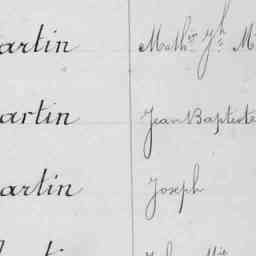 artin Math.^{in} J.^h M
artin Jean Baptiste
artin Joseph